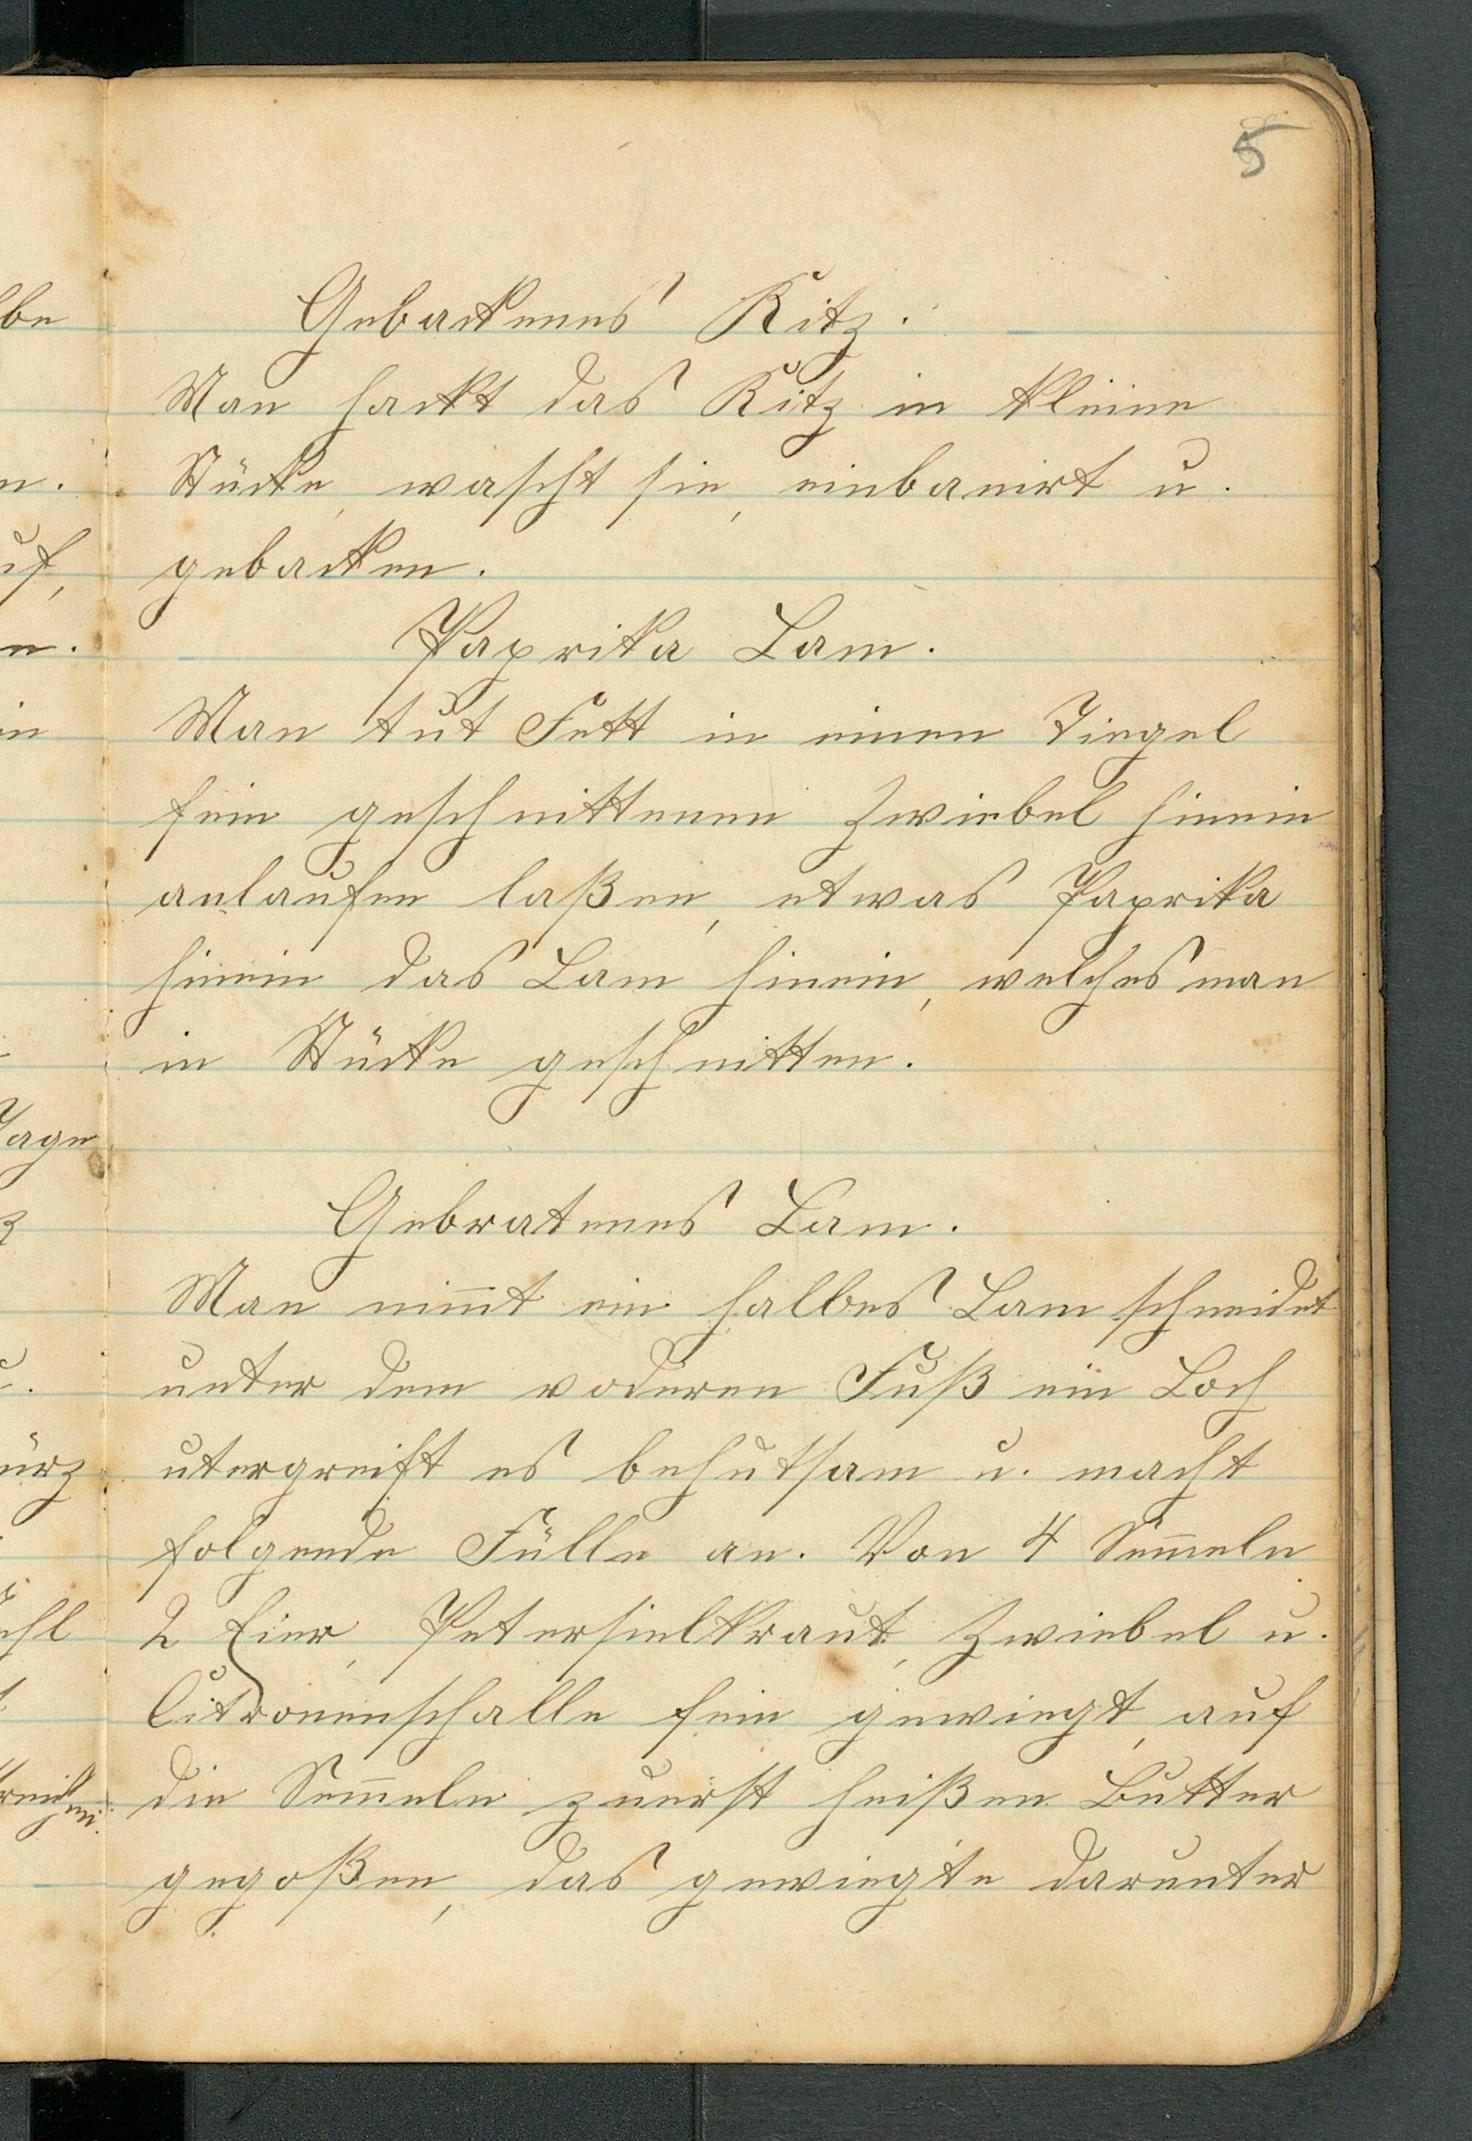 5
Gebackenes Kitz.
Man hackt das Kitz in kleine
Stücke, wascht sie, einbanirt u.
gebacken.
Paprika Lam.
Man tut Fett in einen Tiegel
fein geschnittenen Zwiebel hinein
anlaufen laßen, etwas Paprika
hinein das Lam hinein, welches man
in Stücke geschnitten.
Gebratenes Lam.
Man nim̅t ein halbes Lam schneidet
unter dem voderen Fuß ein Loch
utergreift es behutsam u. macht
folgende Fülle an. Von 4 Sem̅eln
2 Eier, Petersielkraut, Zwiebel u.
Citronenschalle fein gewiegt, auf
die Sem̅eln zuerst heißen Butter
gegoßen, das gewiegte darunter